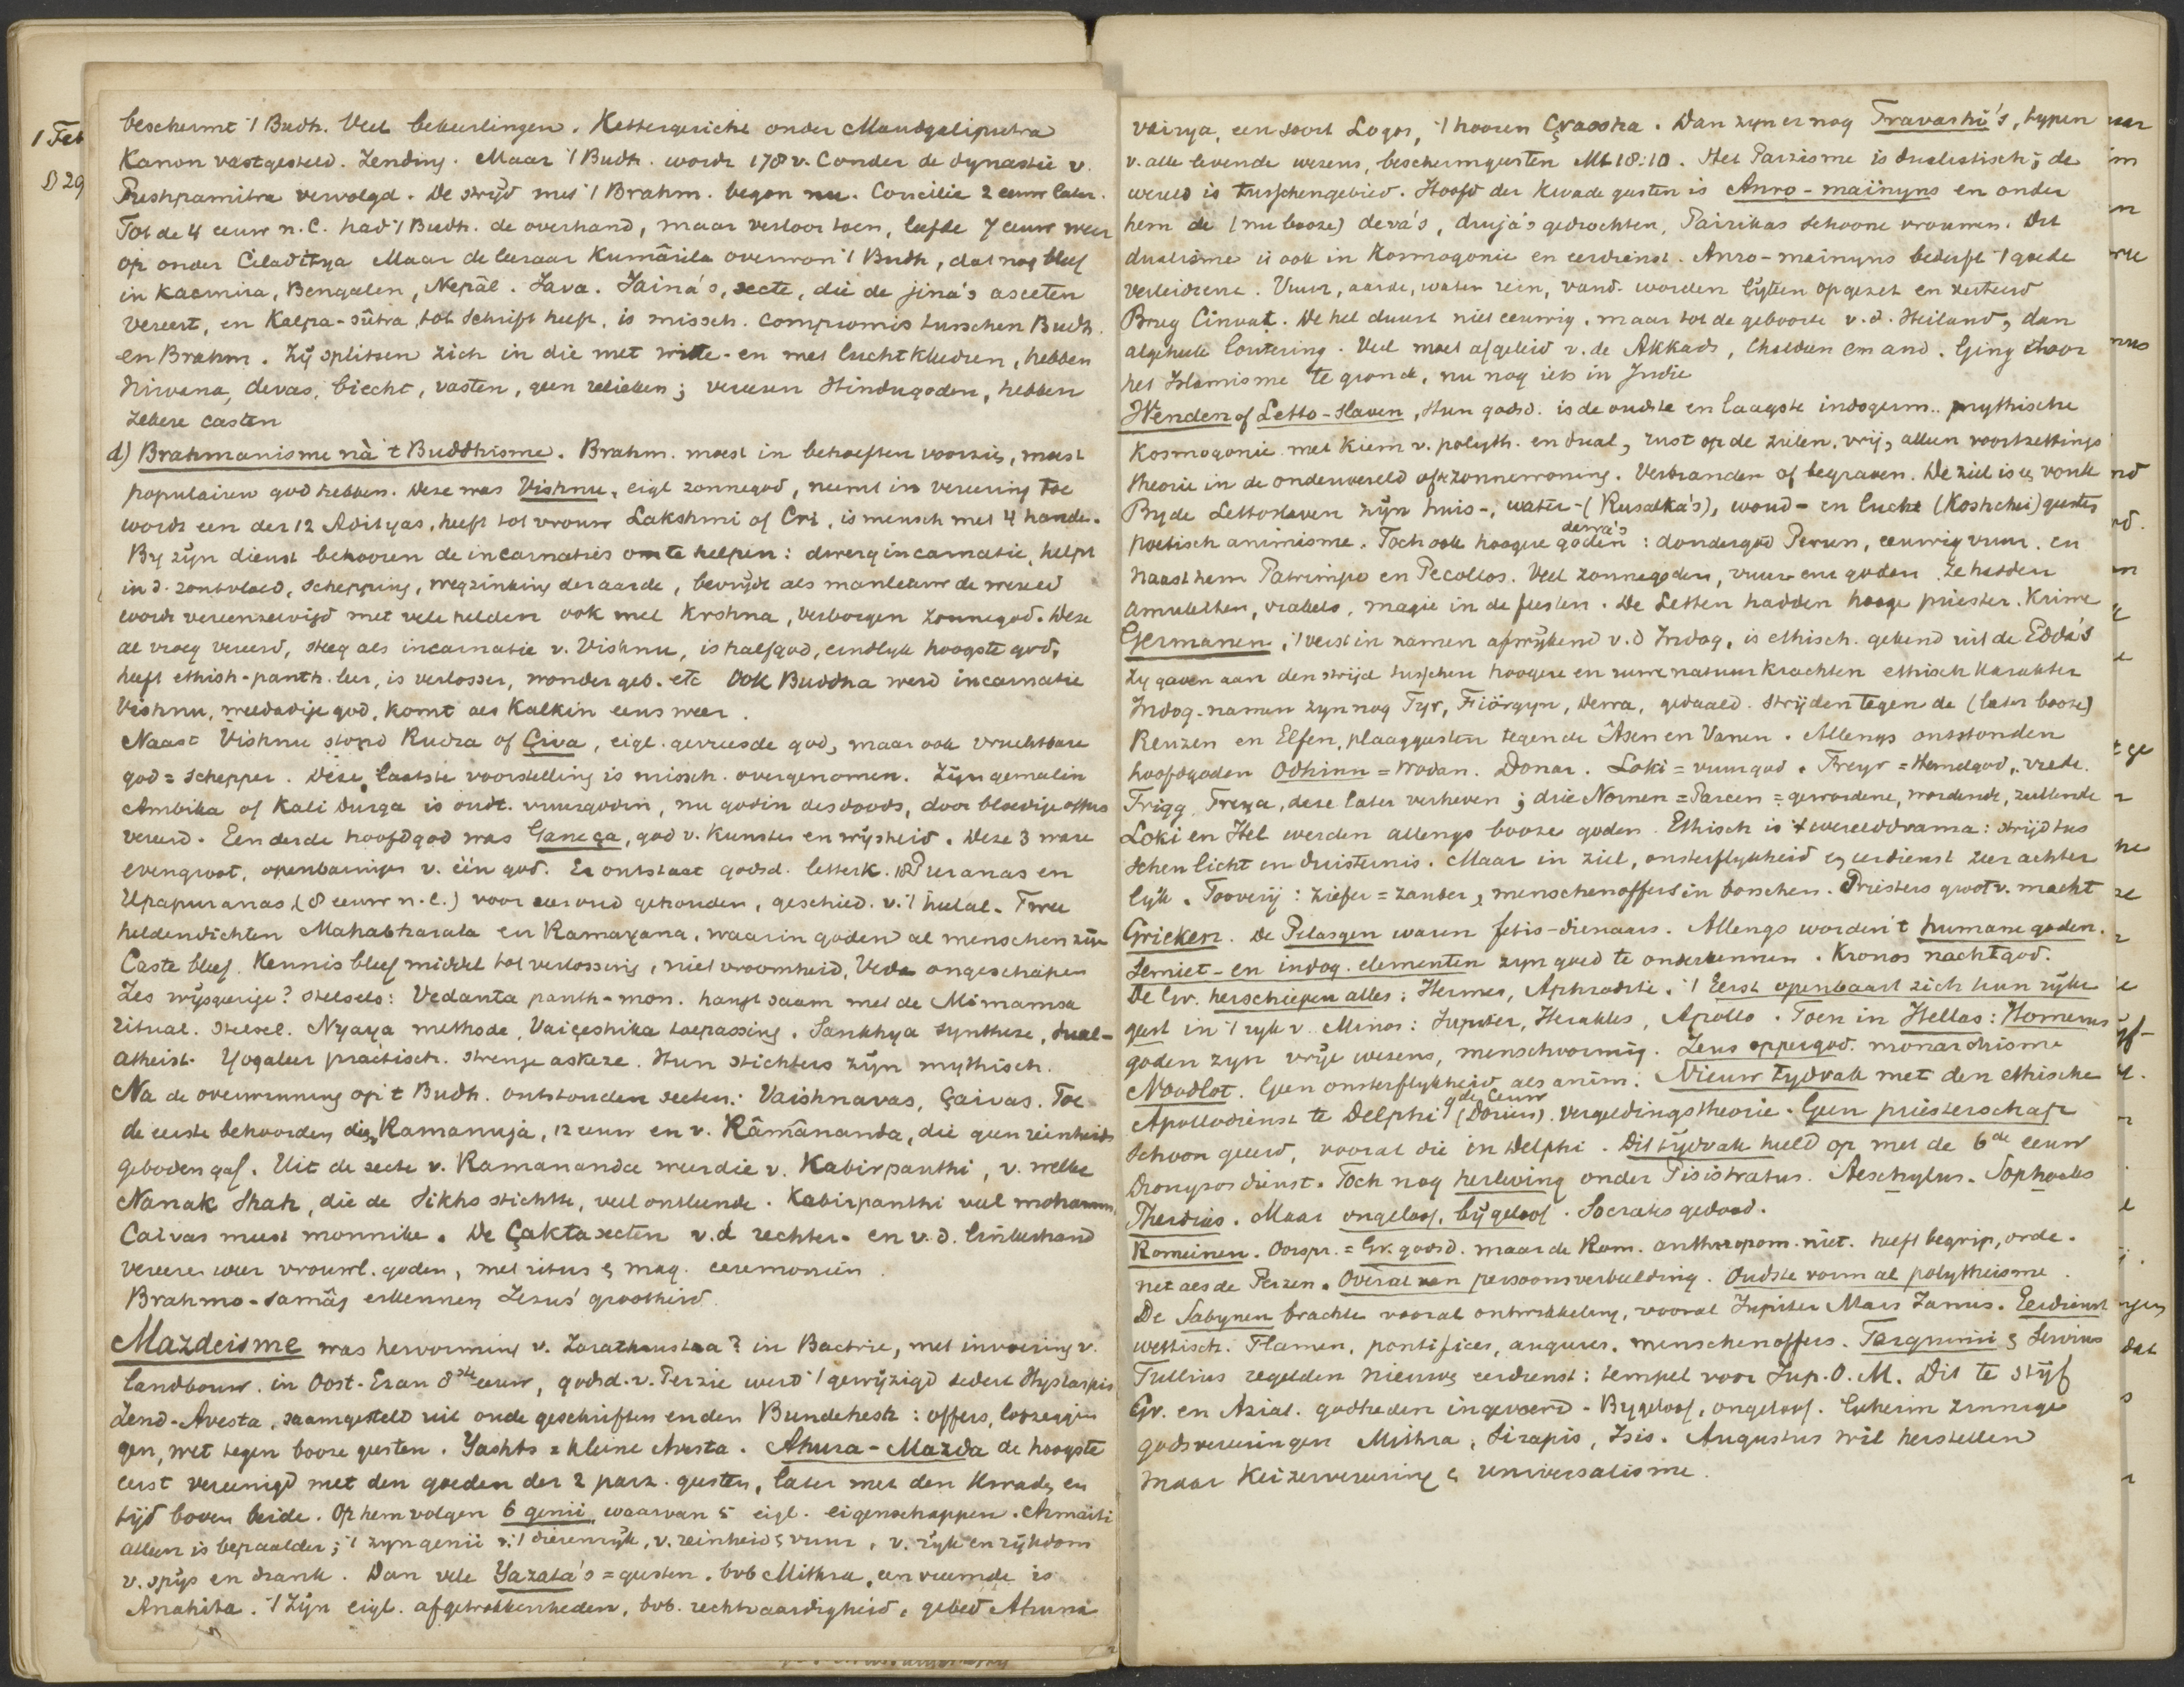 1 Feb
D 29
beschermt 't Budh. Veel bekeerlingen. Kettergericht onder Maudgaliputra
Kanon vastgesteld. Zending. Maar 't Budh. wordt 178 v. C onder de dynastie v.
Pushpamitra vervolgd. De strijd met 't Brahm. begon nu. Concilie 2 eeuw later.
Tot de 4 eeuw n.C. had 't Budh. de overhand, maar verloor toen, leefde 7 eeuw weer
op onder Ciladitya Maar de leeraar Kumârila overwon 't Budh, dat nog bleef
in Kacmira, Bengalen, Nepâl. Java. Jaina's, secte, die de jina's asceten
vereert, en Kalpa-sûtra tot schrift heeft, is missch. compromis tusschen Budh.
en Brahm. Zij splitsen zich in die met witte- en met luchtkleedren, hebben
Nirvana, devas, biecht, vasten, geen relieken; vereeren Hindugoden, hebben
zekere casten
d) Brahmanisme nà 't Buddhisme. Brahm. moest in behoeften voorzien, moest
populairen god hebben. Deze was Vishnu, eigl zonnegod, neemt in vereering toe
wordt een der 12 Adityas, heeft tot vrouw Lakshmi of Cri, is mensch met 4 hande.
By zijn dienst behooren de incarnaties om te helpen: dwergincarnatie, helpt
in d. zontvloed, schepping, wegzinking der aarde, bevrijdt als manleeuw de wereld
wordt vereenzelvigd met vele helden ook met Krshna, verborgen zonnegod. Deze
al vroeg vereerd, steeg als incarnatie v. Vishnu, is halfgod, eindlyk hoogste god,
heeft ethish-panth. leer, is verlosser, wonder geb. etc Ook Buddha werd incarnatie
Vishnu, weldadige god, komt als Kalkin eens weer.
Naast Vishnu stond Rudra of Çiva, eigl. gevreesde god, maar ook vruchtbare
god = schepper. Deze laatste voorstelling is missch. overgenomen. Zijn gemalin
Ambika of Kali Durga is oudt. vuurgodin, nu godin des doods, door bloedige offers
vereerd. Een derde hoofdgod was Ganeça, god v. Kunsten en wijsheid. Deze 3 ware
evengroot, openbaringen v. één god. Er ontstaat godsd. letterk. 18 Puranas en
Upapuranas (8 eeuw n.C.) voor oeroud gehouden, geschied. v. 't heelal. Twee
heldendichten Mahabharata en Ramayana, waarin goden al menschen zijn
Caste bleef. Kennis bleef middel tot verlossing, niet vroomheid, Veda ongeschapen
Zes wijsgeerige? stelsels: Vedanta panth-mon. hangt saam met de Mimamsa
ritual. stelsel. Nyaya methode, Vaiçeshika toepassing. Sankhya synthese, dual-
atheist. Yogaleer practisch. strenge askeze. Hun stichters zijn mythisch.
Na de overwinning op 't Budh. ontstonden secten: Vaishnavas, Çaivas. Toe
de eerste behoorden die Ramanuja, 12 eeuw en v. Râmânanda, die geen reinheids
geboden gaf. Uit de secte v. Ramananda werd die v. Kabirpanthi, v. welke
Nanak Shah, die de Sikhs stichtte, veel ontleende. Kabirpanthi veel mohamm.
Caivas meest monniken. De Çakta secten v.d rechter- en v.d. linkerhand
vereeren weer vrouwl. goden, met ritus & mag. ceremoniën.
Brahmo-samâj erkennen Jezus' grootheid.
Mazdeisme was hervorming v. Zarathustra? in Bactrie, met invoering v.
landbouw. in Oost-Eran 8ste eeuw, godsd. v. Perzie werd 't gewijzigd sedert Hystaspis
Zend-Avesta, saamgesteld uit oude geschriften en den Bundehesh: offers, lofzeggin
gen, wet tegen booze geesten. Yashts = kleine Avesta. Ahura-Mazda de hoogste
eerst vereenigd met den goeden der 2 parz. geesten, later met den kwade, en
tijd boven beide. Op hem volgen 6 genii, waarvan 5 eigl. eigenschappen. Armaiti
alleen is bepaalder; 't zyn genii v. 't dierenrijk, v. reinheid & vuur, v. rijk en rijkdom
v. spijs en drank. Dan vele Yazata's = geesten. bvb Mithra, een vreemde is
Anahita. 't Zijn eigl. afgetrokkenheden, bvb. rechtvaardigheid, gebed Ahuna
vairya, een soort Logos, 't hooren Çraosha. Dan zyn er nog Fravashi's, typen
v. alle levende wezens, beschermgeesten Mt 18:10. Het Parzisme is dualistisch; de
wereld is tusschengebied. Hoofd der Kwade geesten is Anro-maïnyus en onder
hem de (nu booze) deva's, druja's gedrochten, Pairikas schoone vrouwen. Dit
dualisme is ook in Kosmogonie en eerdienst. Anro-mainyus bederft 't goede
verleidende. Vuur, aarde, water rein, vand. worden lijken opgezet en verteerd
Brug Cinvat. De hel duurt niet eeuwig, maar tot de geboorte v.d. Heiland, dan
algeheele loutering. Veel moet afgeleid v. de Akkads, Chaldeen em and. Ging door
het Islamisme te gronde, nu nog iets in Indie
Wenden of Letto-Slaven, Hun godsd. is de oudste en laagste indogerm.. mythische
Kosmogonie met kiem v. polyth. en dual, rust op de zielen, vrij, alleen voortzettings
theorie in de onderwereld of zonnewoning. Verbranden of begraven. De ziel is 'n vonk
By de Lettoslaven zijn huis-, water-(Rusalka's), woud- en lucht (Koshchei) geesten
poëtisch animisme. Toch ook hoogere goden derra's: dondergod Perun, eeuwig vuur, en
naast hem Patrimpo en Pecollos. Veel zonnegoden, vuur en goden. Ze hadden
amuletten, orakels, magie in de feesten. De Letten hadden hooge priester. Kriwe
Germanen, 't verst in namen afwijkend v.d Indog, is ethisch. gekend uit de Edda's
Zy gaven aan den strijd tusschen hoogere en ruwe natuurkrachten ethisch karakter
Indog. namen zyn nog Tyr, Fiörgyn, Derra, gedaald. Strijden tegen de (later booze)
Reuzen en Elfen, plaaggeesten tegen de Âsen en Vanen. Allengs ontstonden
hoofdgoden Odhinn = Wodan. Donar. Loki = vuurgod. Freyr = Hemelgod, vrede.
Frigg, Freya, deze later verheven; drie Nornen = Parcen = gewordene, wordende, zullende
Loki en Hel werden allengs booze goden. Ethisch is 't werelddrama: strijd tus
schen licht en duisternis. Maar in ziel, onsterflykheid en eerdienst zeer achter
lijk. Tooverij: ziefer = zauber, menschenoffers in bosschen. Priesters groot v. macht
Grieken. De Pelasgen waren fetis-dienaars. Allengs worden 't humane goden.
Semiet- en indog. elementen zyn goed te onderkennen. Kronos nachtgod.
De Gr. herschiepen alles: Hermes, Aphrodite. 't Eerst openbaart zich hun rijke
geest in 't ryk v. Minos: Jupiter, Herakles, Apollo. Toen in Hellas: Homerus
goden zyn vrije wezens, menschvormig. Zeus oppergod. monarchisme
Noodlot. Geen onsterflykheid als anim. Nieuw tydvak met den ethische
Apollodienst te Delphi 9de Eeuw (Doriers). vergeldingstheorie. Geen priesterschap
schoon geleerd, vooral die in Delphi. Dit tijdvak hield op met de 6de eeuw
Dionysosdienst. Toch nog herleving onder Pisistratus. Aeschylus. Sophocles
Pheidias. Maar ongeloof, bijgeloof. Socrates gedood.
Romeinen. Oorspr. = Gr. godsd. maar de Rom. anthropom. niet. heeft begrip, orde.
net als de Perzen. Overal van persoonsverbeelding. Oudste vorm al polytheisme.
De Sabynen brachte vooral ontwikkeling, vooral Jupiter Mars Janus. Eerdienst
wettisch. Flamen, pontifices, augures. menschenoffers. Tarquinii & Servius
Tullius regelden nieuwe eerdienst: tempel voor Jup. O. M. Dit te stijf
Gr. en Aziat. godheden ingevoerd. Bygeloof, ongeloof. Geheim zinnige
godsvereeringen Mithra, Sirapis, Isis. Augustus wil herstellen
maar Keizervereering & universalisme.